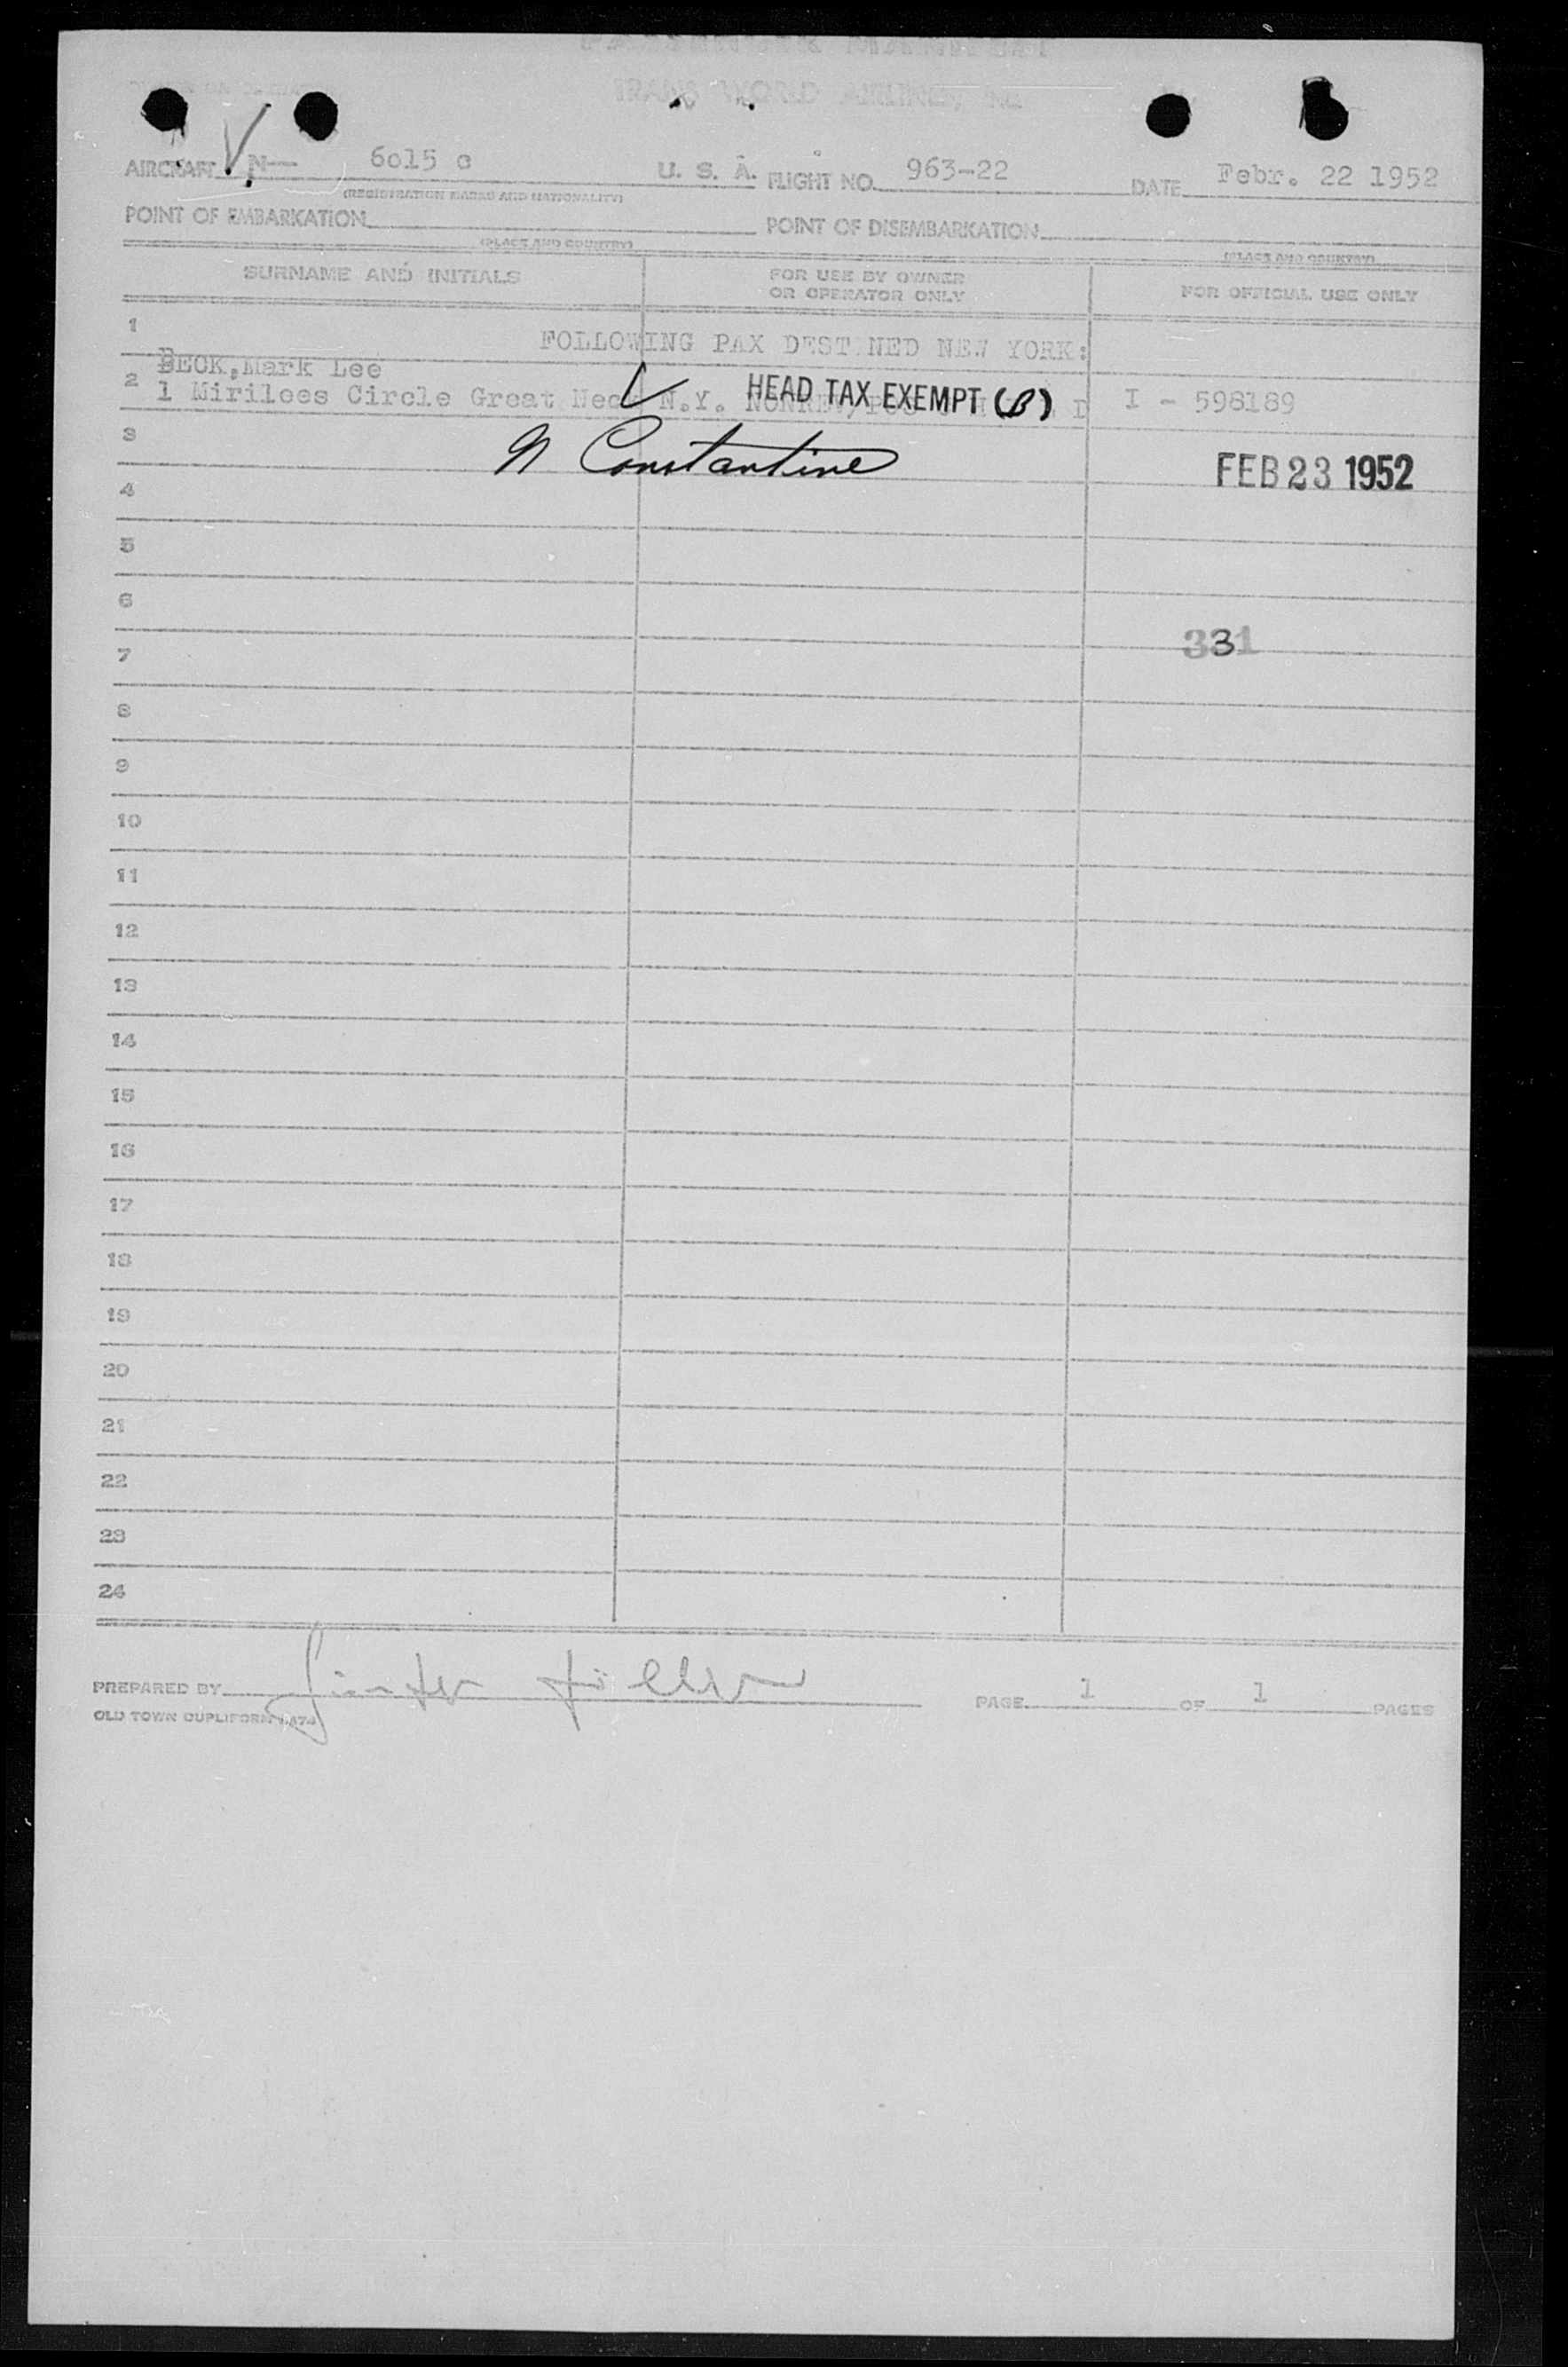 PASSENGER MANIFEST
TRANS WORLD AIRLINES, INC
AIRCRAFT N— 6o15 c U. S. A. FLIGHT NO. 963-22 DATE Febr. 22 1952
(REGISTRATION MARKS AND NATIONALITY)
POINT OF EMBARKATION POINT OF DISEMBARKATION
(PLACE AND COUNTRY) (PLACE AND COUNTRY)
SURNAME AND INITIALS FOR USE BY OWNER OR OPERATOR ONLY FOR OFFICIAL USE ONLY
1 FOLLOWING PAX DESTINED NEW YORK:
BECK, Mark Lee
2 1 Mirilees Circle Great Neck N.Y. HEAD TAX EXEMPT (B) I - 598189
3 N Constantine FEB 23 1952
4
5
6
331
7
8
9
10
11
12
13
14
15
16
17
18
19
20
21
22
23
24
PREPARED BY PAGE 1 OF 1 PAGES
OLD TOWN DUPLIFORM